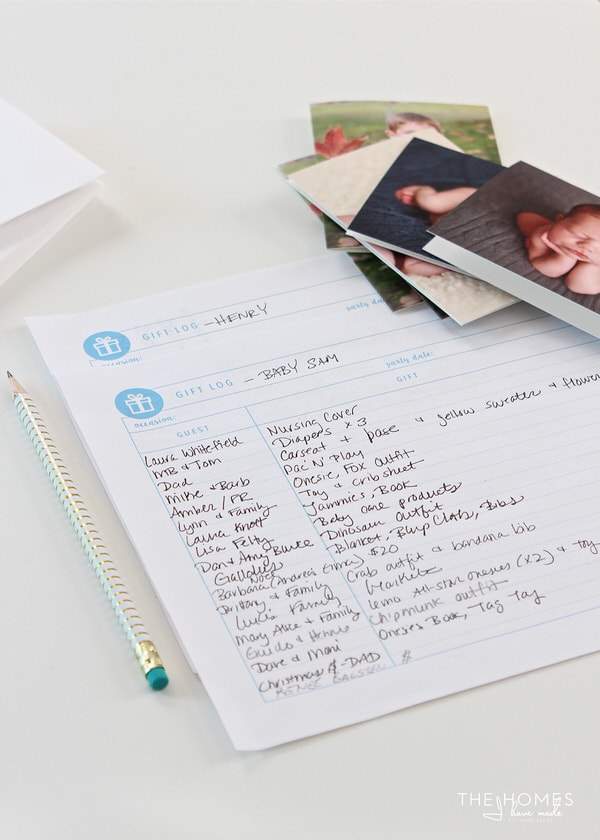 GIFT LOG - HENRY
party da
occasion:
GIFT LOG - BABY SAM
party date:
occasion:
GUEST
GIFT
Laura Whitefield
MB & Tom
Dad
Mike & Barb
Amber / PR
Lynn & Family
Laura Knott
Lisa Felty
Dan & Amy
Noel
Barbara (Andrea's
& Family
Lucia Family
Mary Alice & Family
Guido & Hennie
Dave & Mari
Christmas $ - DAD
Nursing Cover
Diapers x 3
Carseat + base & yellow sweater & flower
Pac 'N' Play
Onesie, Fox outfit
Toy & crib sheet
Jammies, Book
Baby care products
Dinosaur outfit
Blanket, Burp Cloths, Bibs
$20
Crab outfit & bandana bib
All-star onesies (x2) & toy
Chipmunk outfit
Onesies Book, Tag Toy
$
THE HOMES
I have made